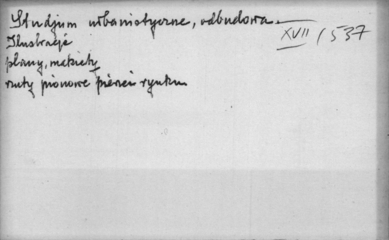 Studjum urbanistyczne, odbudowa.
XVII / 537
Ilustracje
plany, makiety
rzuty pionowe pierzei rynku